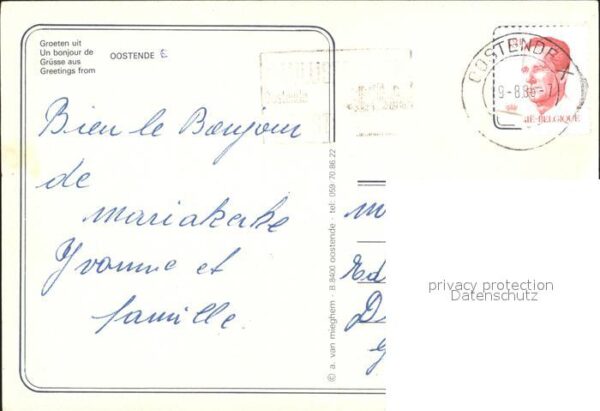 Groeten uit
Un bonjour de
Grüsse aus
Greetings from
OOSTENDE
OOSTENDE X
9-8.86
BELGIQUE
Oostende
Bien le Bonjour
de
Mariakerke
Yvonne et
famille.
© a. van mieghem - B. 8400 oostende - tel. 059 70.86.22
M
Ed
D
privacy protection
Datenschutz